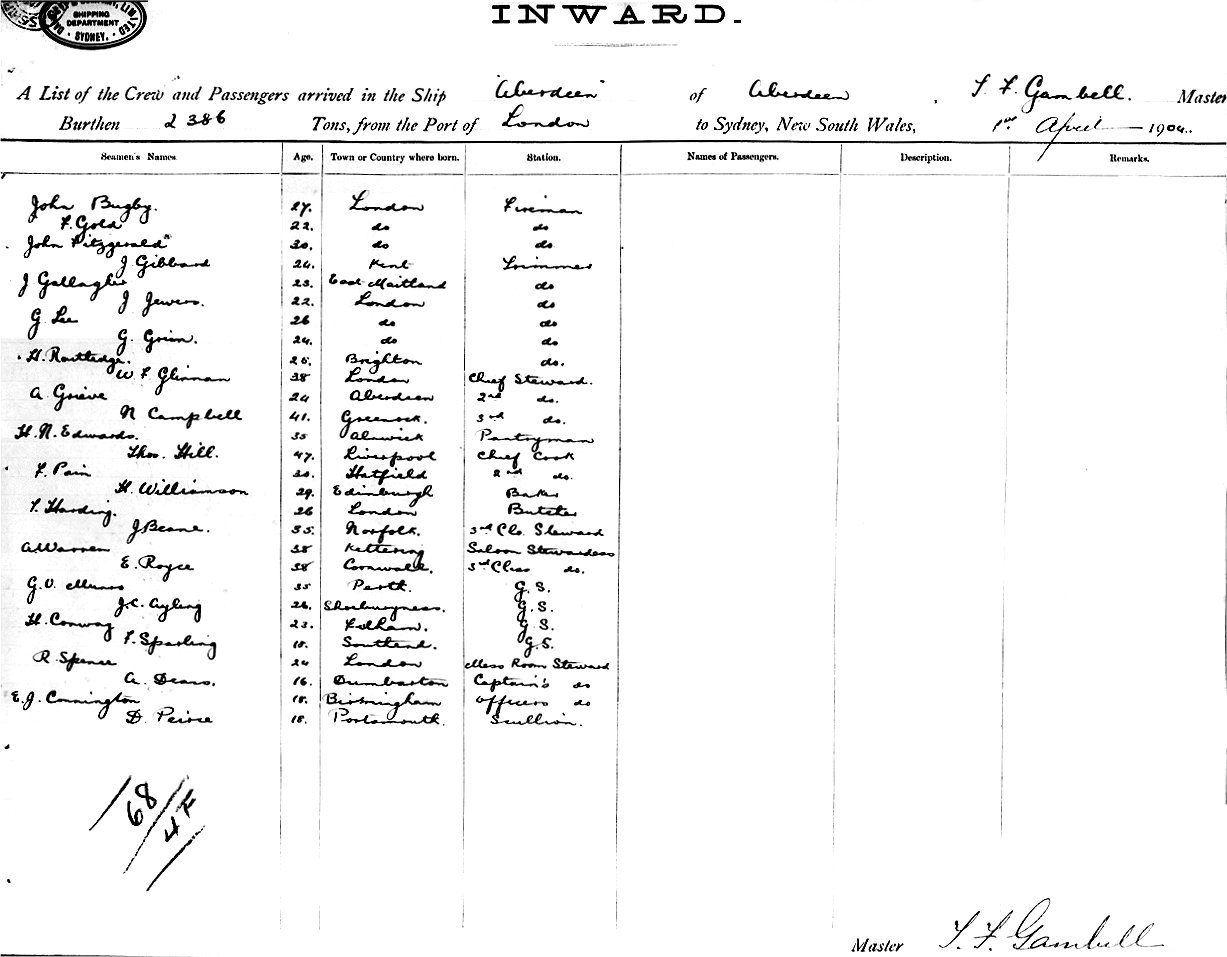 SHIPPING
DEPARTMENT
SYDNEY.
INWARD.
A List of the Crew and Passengers arrived in the Ship "Aberdeen" of Aberdeen, Gambell. Master
Burthen 2386 Tons, from the Port of London to Sydney, New South Wales, 1st April 1904.
Seamen's Names. Age. Town or Country where born. Station. Names of Passengers. Description. Remarks.
John Bugby. 27. London Fireman
F. Gold 22. do do
John Fitzgerald 30. do do
J Gibbard 24. Kent Trimmer
J Gallagher 23. East Maitland do
J Jewers. 22. London do
G. Lee 26 do do
G. Green. 24. do do
H. Routledge. 25. Brighton do.
W F Glinman 38 London Chief Steward.
A. Grieve 24 Aberdeen 2nd do.
N Campbell 41. Greenock. 3rd do.
H. N. Edwards. 35 Alnwick Pantryman
Thos. Hill. 47. Liverpool Chief Cook
F. Pain 30. Hatfield 2nd do.
H. Williamson 29. Edinburgh Baker
T. Harding. 26 London Butcher
J Beane. 35. Norfolk. 3rd Cls. Steward
A Warren 38 Kettering Saloon Stewardess
E. Royce 38 Cornwall. 3rd Class do.
G. V. Munro 35 Perth. G.S.
J.C. Ayling 26. Shoeburyness. G.S.
H. Conway 23. G.S.
F. Sparling 18. Southend. G.S.
R. Spence 24 London Mess Room Steward
A. Dears. 16. Dumbarton Captain's do
E. J. Connington 18. Birmingham Officers do
D. Peirce 18. Portsmouth. Scullion.
68
Master Gambell